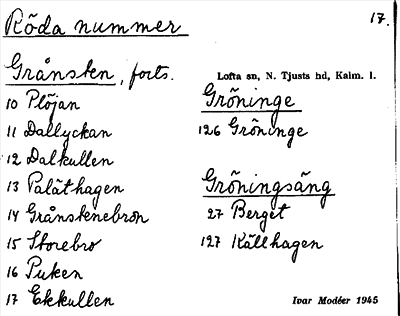 Röda nummer
17.
Grånsten, forts.
10 Plöjan
11 Dallyckan
12 Dalkullen
13 Paläthagen
14 Grånstenebron
15 Storebro
16 Puken
17 Ekkullen
Lofta sn, N. Tjusts hd, Kalm. l.
Gröninge
126 Gröninge
Gröningsäng
27 Berget
127 Källhagen
Ivar Modéer 1945